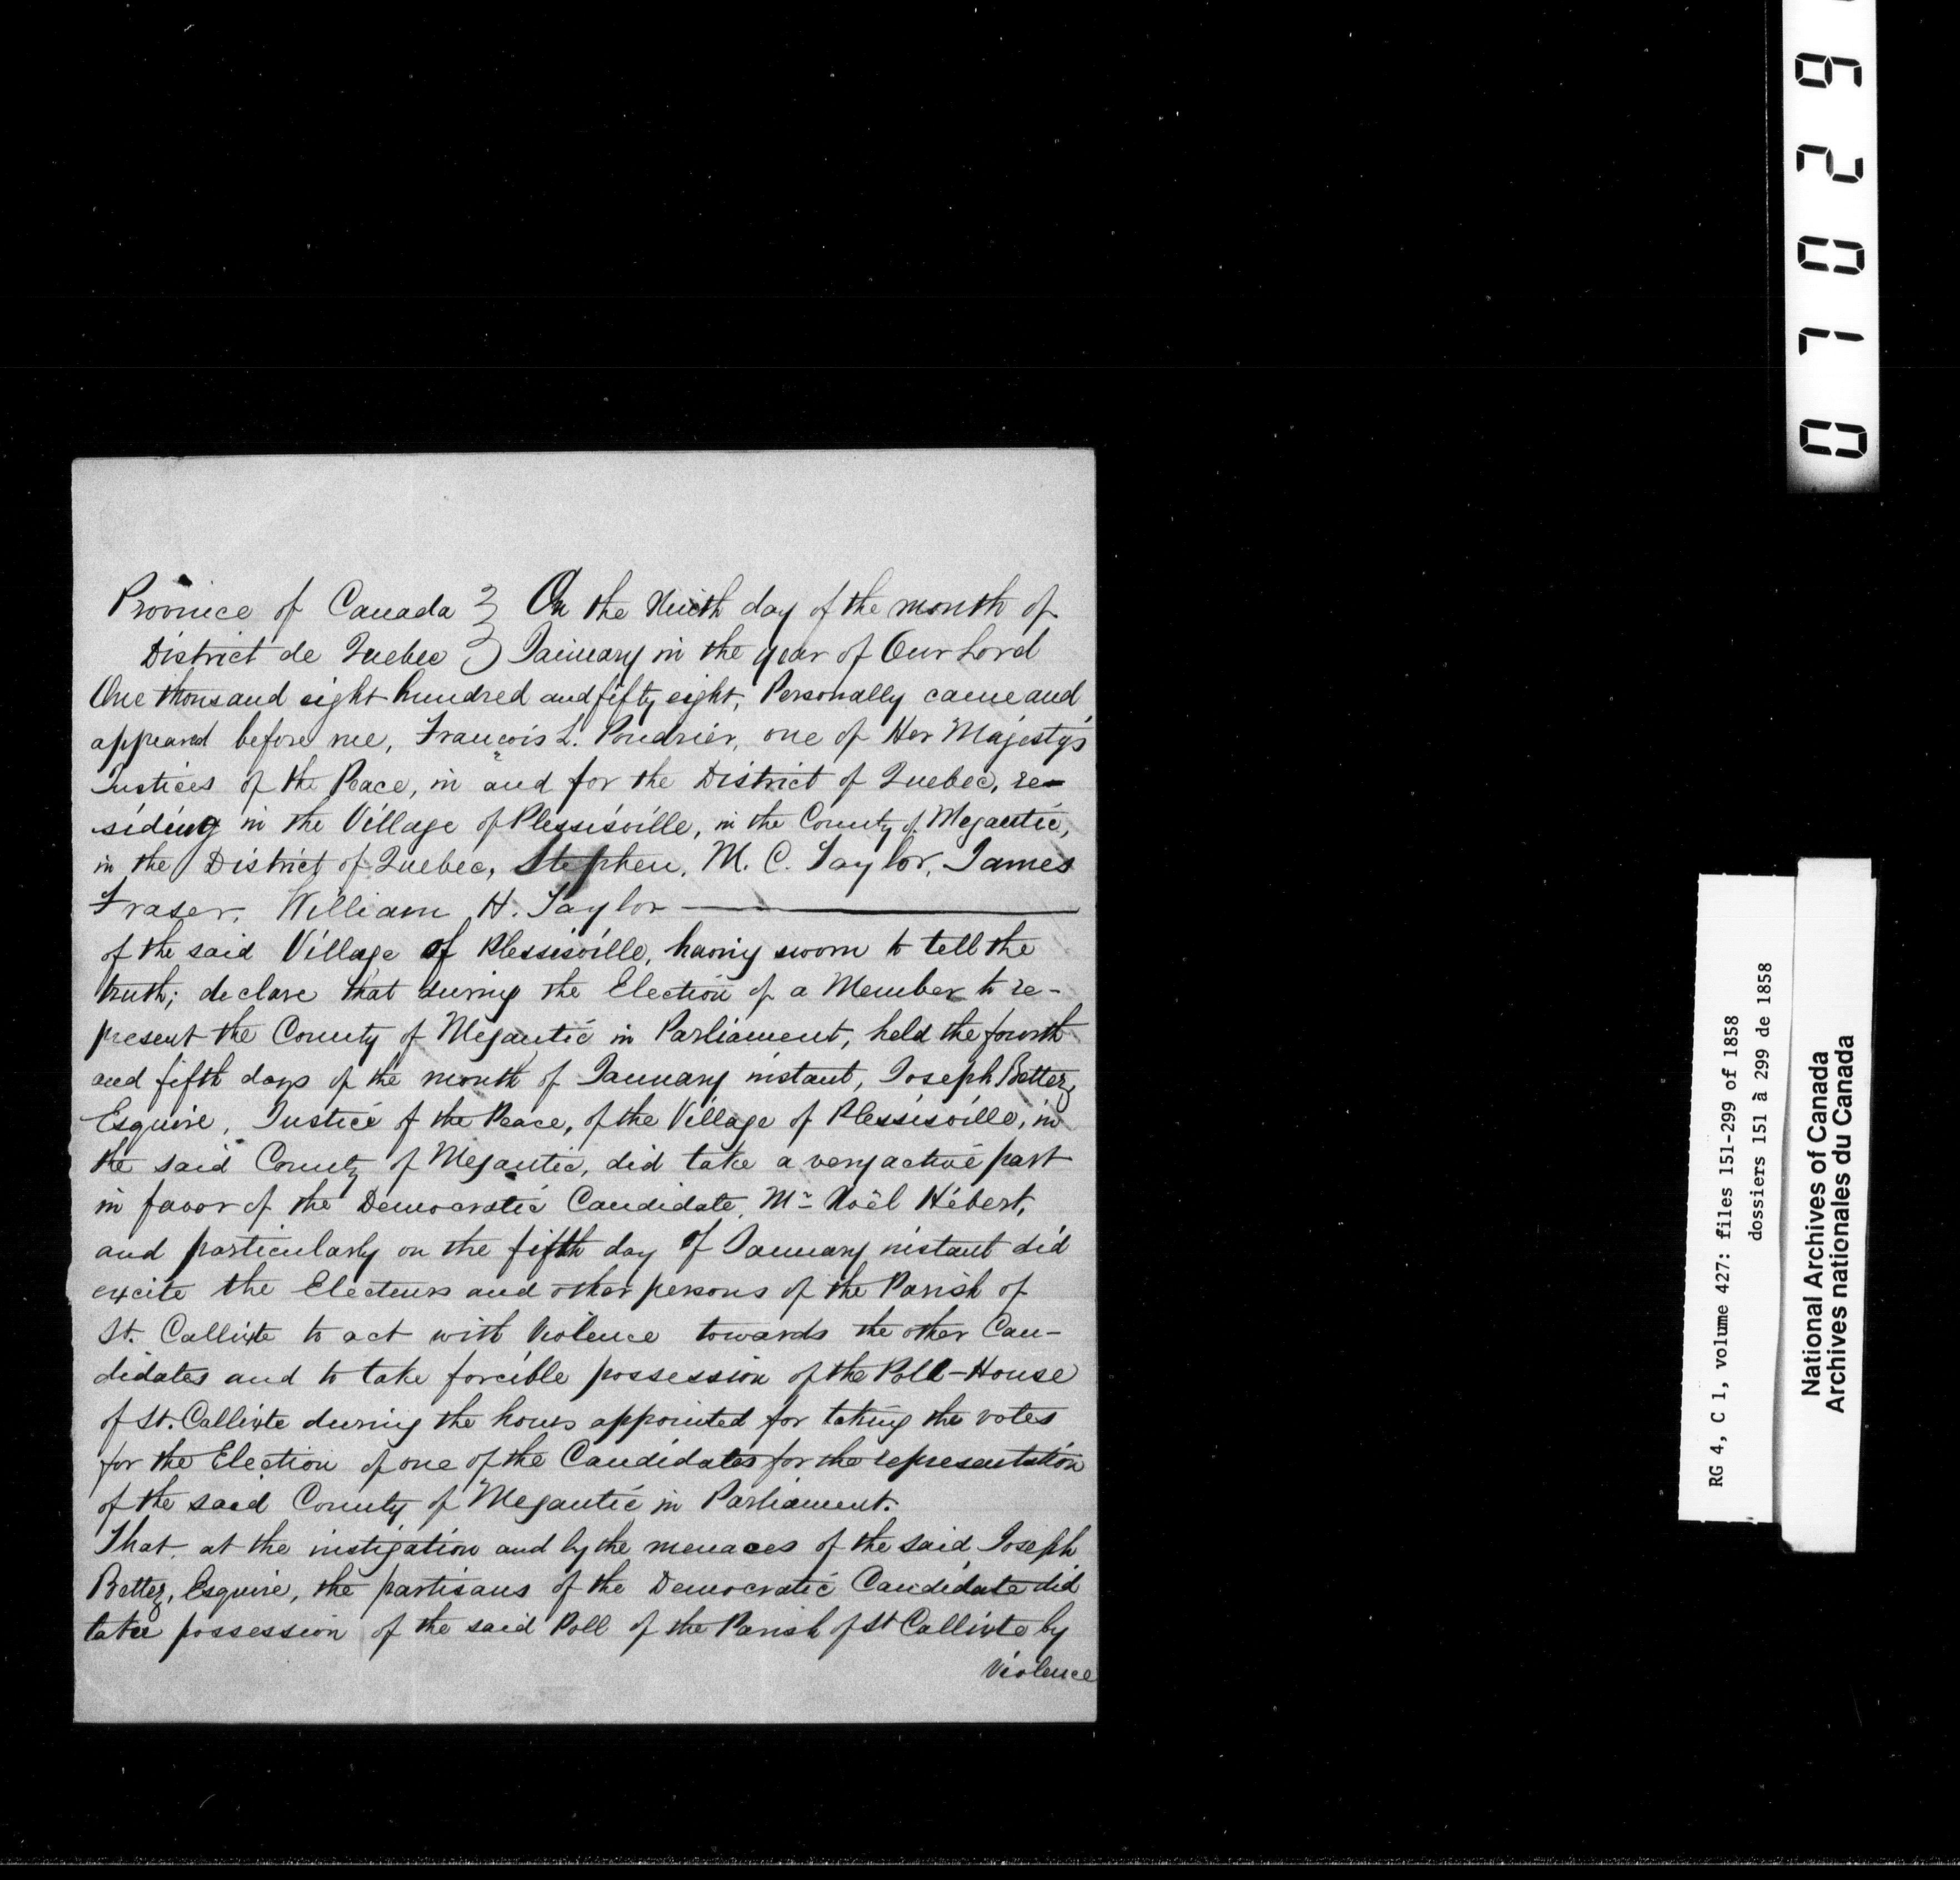 Province of Canada } On the Ninth day of the month of
District de Quebec } January in the year of Our Lord
One thousand eight hundred and fifty eight, Personally came and
appeared before me, François L. Poudrier, one of Her Majesty's
Justices of the Peace, in and for the District of Quebec, re-
siding in the Village of Plessisville, in the County of Megantic,
in the District of Quebec, Stephen, M. C. Taylor, James
Fraser, William H. Taylor
of the said Village of Plessisville, having sworn to tell the
truth; declare that during the Election of a Member to re-
present the County of Megantic in Parliament, held the fourth
and fifth days of the month of January instant, Joseph Bettez
Esquire, Justice of the Peace, of the Village of Plessisville, in
the said County of Megantic, did take a very active part
in favor of the Democratic Candidate, Mr Noël Hébert,
and particularly on the fifth day of January instant did
excite the Electeurs and other persons of the Parish of
St. Callixte to act with Violence towards the other Can-
didates and to take forcible possession of the Poll-House
of St. Callixte during the hours appointed for taking the votes
for the Election of one of the Candidates for the representation
of the said County of Megantic in Parliament.
That, at the instigation and by the menaces of the said Joseph
Bettez, Esquire, the partisans of the Democratic Candidate did
take possession of the said Poll of the Parish of St Callixte by
Violence
0 1 0 2 9
RG 4, C 1, volume 427: files 151-299 of 1858
dossiers 151 à 299 de 1858
National Archives of Canada
Archives nationales du Canada